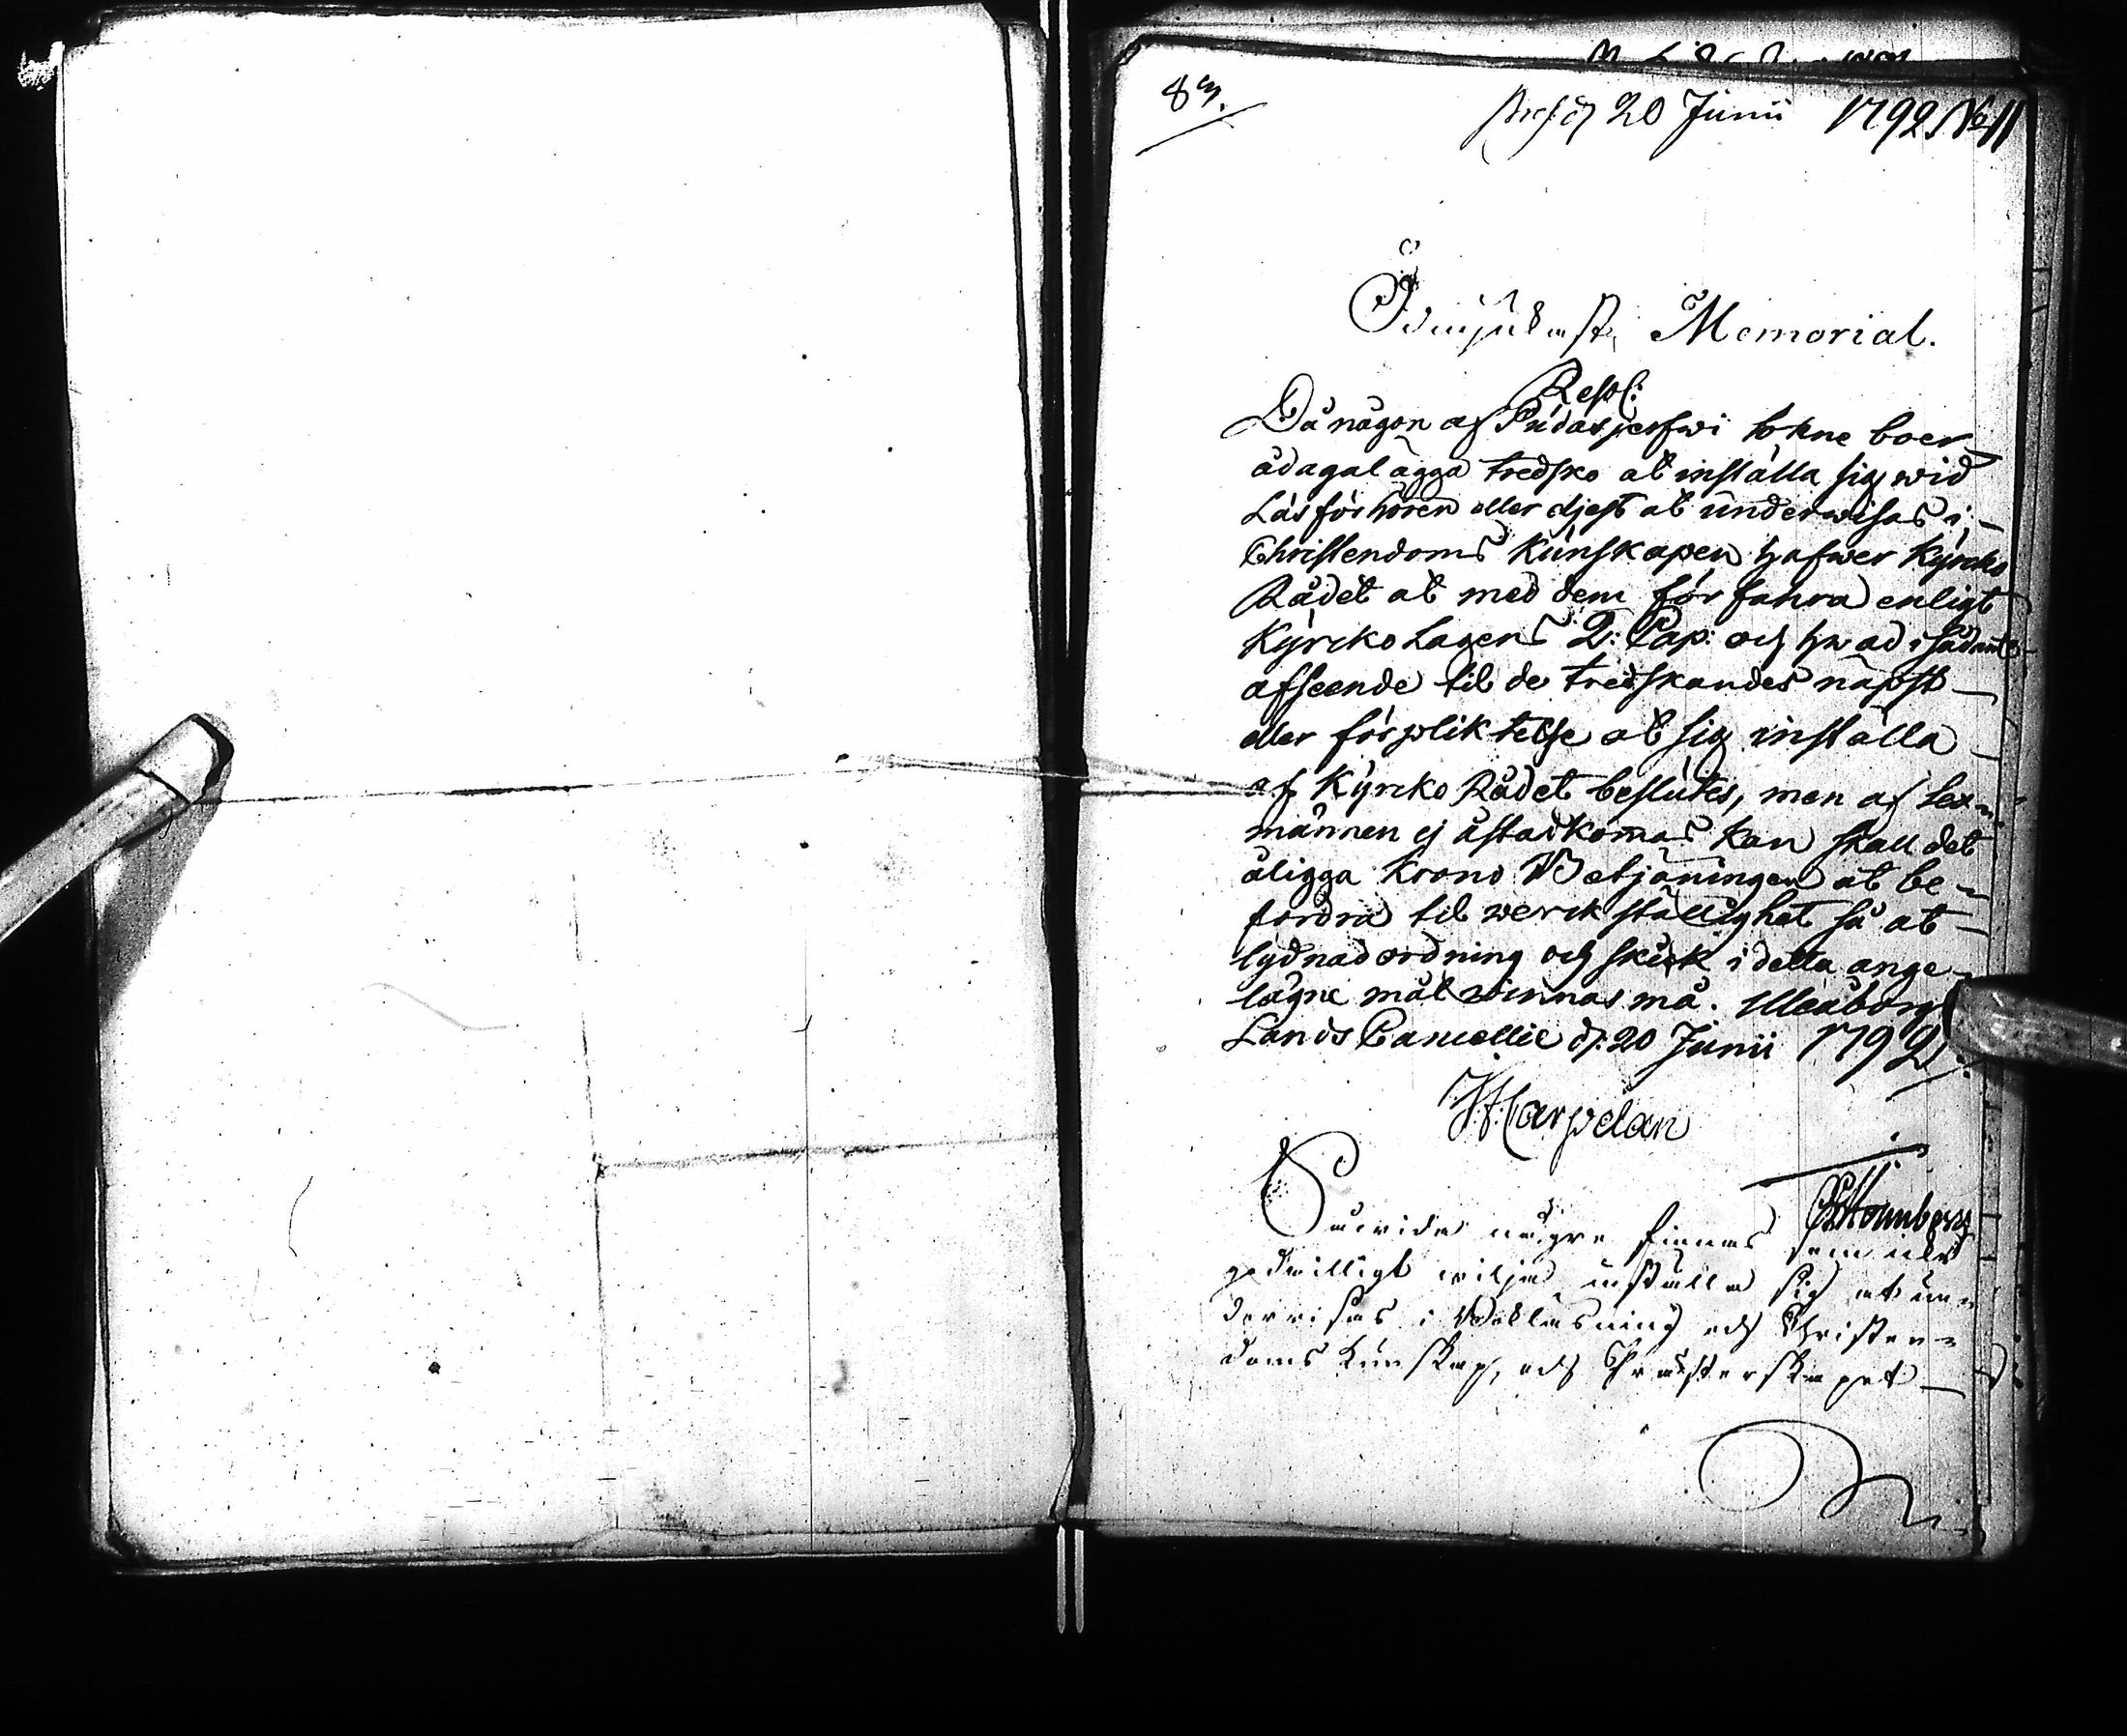 8
20 Junii 1792 No 11
Ödmjukast Memorial.
Resol:
Då någon af Pudasjerfwi Sokne boer
ådagalägga tredsko at inställa sig wid
Läsförhören eller eljest at underwisas i
Christendoms Kunskapen hafwer Kyrcko
Rådet at med dem förfahra enligt
Kyrcko Lagens 2: Cap: och hwad i sådant
afseende til de tredskandes näpst
eller förpliktelse at sig inställa
af Kyrcko Rådet beslutes, men af Sex-
männen ej åstadkomas kan skall det
åligga Krono Betjäningen at be-
fordra til werckställighet så at
lydnad ordning och skick i detta ange-
lägne mål winnas må. Uleåborgs
Lands Cancellie d: 20 Junii 1792.
Carpelan
Såwida någre finnas som icke
godwilligt wilja inställa sig at un-
derwisas i Bokläsning och Christen-
doms Kunskap, och Prästerskapet